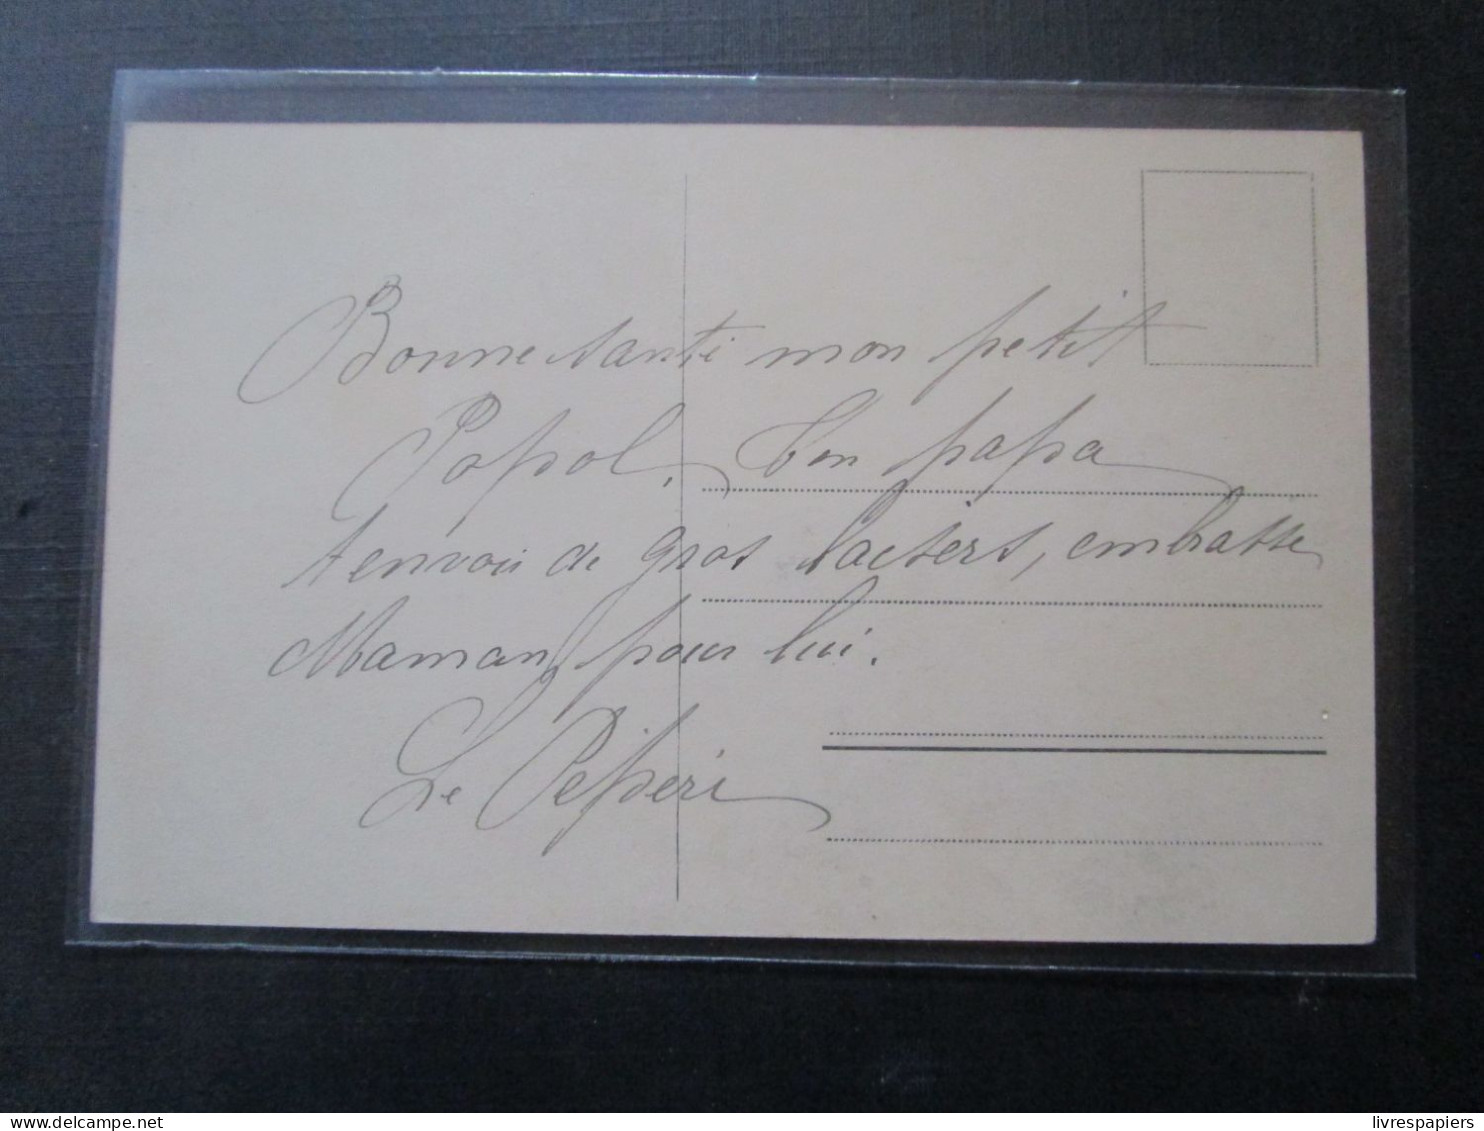 Bonne santé mon petit
Popol, ton papa
t'envoie de gros baisers, embrasse
Maman pour lui.
Le Pépère
delcampe.net
livrespapiers